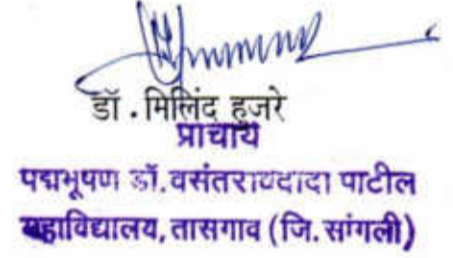 डॉ . मिलिंद हुजरे
प्राचार्य
पद्मभूषण डॉ. वसंतरावदादा पाटील
महाविद्यालय, तासगाव (जि. सांगली)